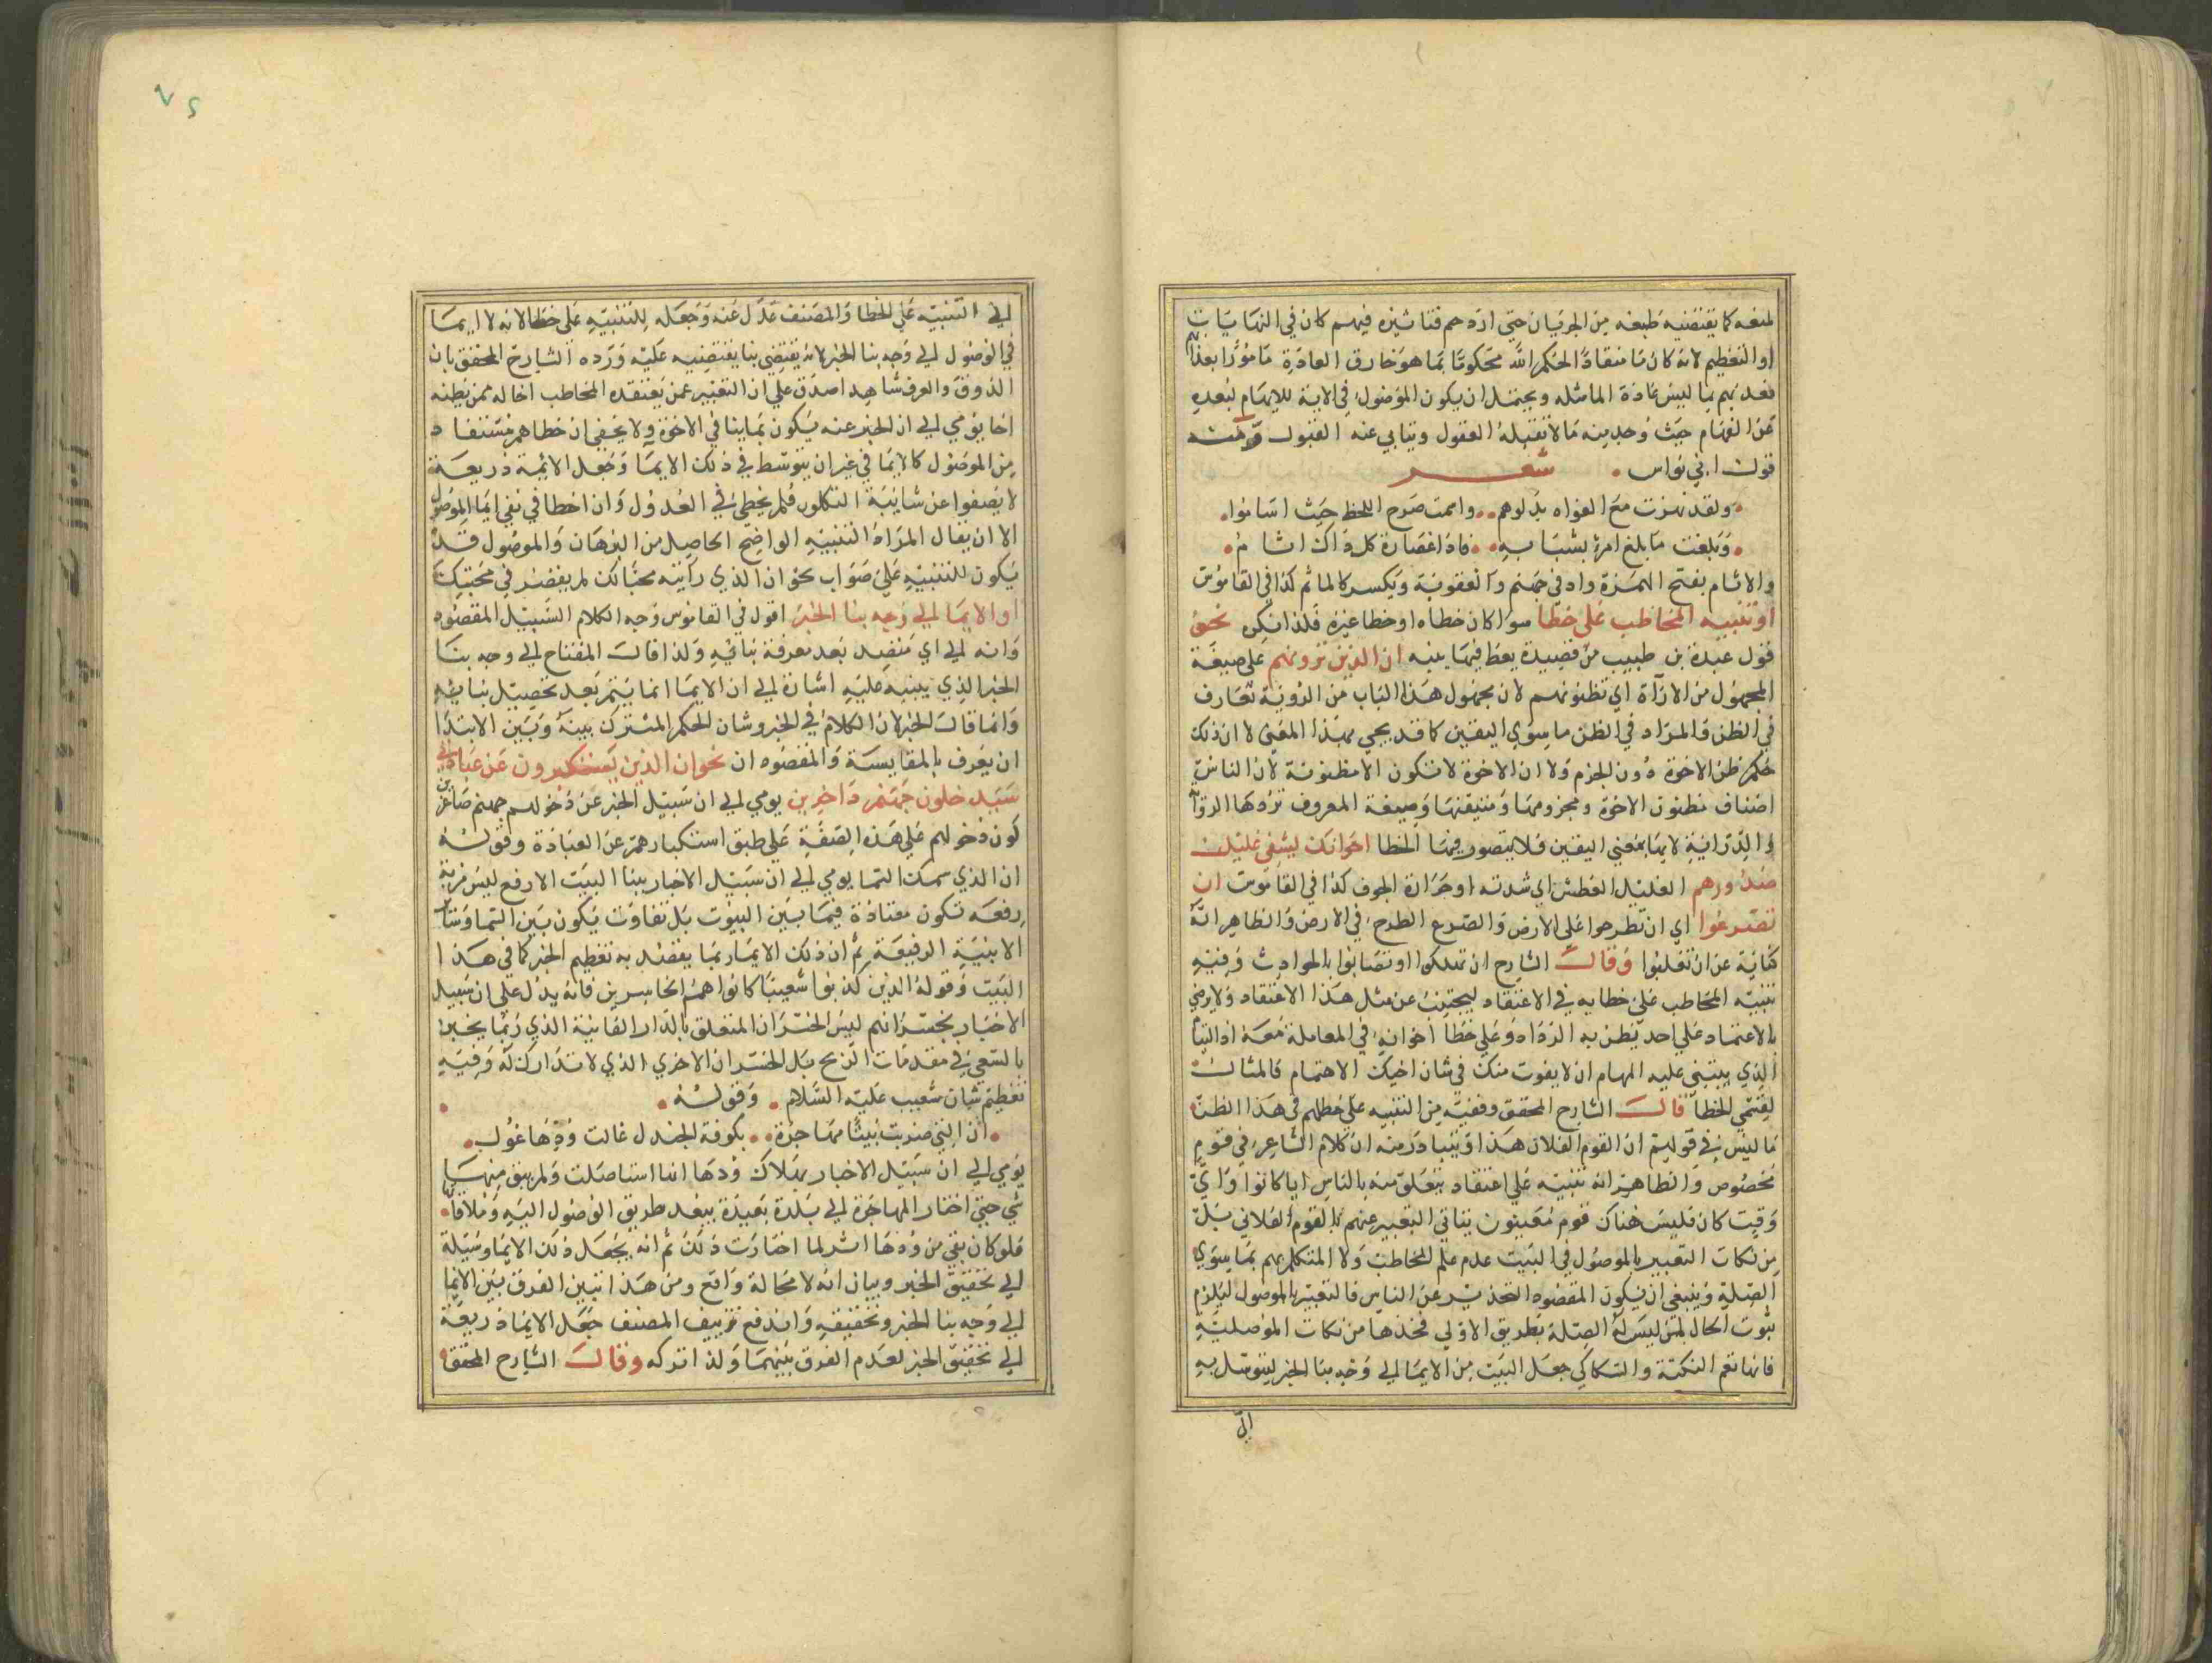 لمنعه كما يقتضيه طبعه من الجريان حتى ازدحم فتاثيره فيهم كان في النهايات
او التعظيم لانه كان ما منقادا لحكم الله محكوما بما هو خارق العادة مامورا بعذا
بعد بهم بما ليس عادة الماء مثله ويحتمل ان يكون الموصول في الاية للابهام لبعده
عن الفهام حيث وحد منه ما لا تقبله العقول ويتابى عنه القبول ومنه
قول ابي نواس شعر
ولقد نهزت مع الغواه بدلوهم واسمت صرح اللحظ حيث اساموا
وبلغت ما بلغ امرؤ بشبابه فاذا عصارة كل ذاك اثام
والاثام بفتح الهمزة واد في جهنم والعقوبة ويكسر كالماثم كذا في القاموس
او تنبيه المخاطب على خطا سوا كان خطاه او خطا غيره فلذا نكره نحو
قول عبدة بن طبيب من قصيدة يعظ فيها بنيه ان الذين ترونهم على صيغة
المجهول من الاراة اي تظنونهم لان مجهول هذا الباب من الروية تعارف
في الظن والمراد في الظن ما سوى اليقين كما قد يجي بهذا المعنى لا ان ذلك
حكم ظن الاخوة دون الجزم ولا ان الاخوة لا تكون الا مظنونة لان الناس
اصناف مظنون الاخوة ومجزومها ومتيقنها وصيغة المعروف تردها الروا
والدراية لانها بمعنى اليقين فلا يتصور فيها الخطا اخوانكم يشفي غليل
صدورهم الغليل العطش اي شدته او حرارة الجوف كذا في القاموس ان
تصرعوا اي ان تطرحوا على الارض والصرع الطرح في الارض والظاهر انه
كناية عن ان تغلبوا وقال الشارح ان تهلكوا او تصابوا بالحوادث وفيه
تنبيه المخاطب على خطايه في الاعتقاد ليجتنب عن مثل هذا الاعتقاد ولا يرضى
بالاعتماد على احد يظن به الوداد وعلى خطا اخوانه في المعاملة معه اذ البنا
الذي يبتنى عليه المهام ان لا يفوت منك في شان اخيك الاهتمام فالمثال
لقسمي الخطا قال الشارح المحقق وففيه من التنبيه على خطاهم في هذا الظن
ما ليس في قولهم ان القوم الفلان هذا ويتبادر منه ان كلام الشاعر في قوم
مخصوص والظاهر انه تنبيه على اعتقاد يتعلق منه بالناس ايا كانوا واي
وقت كان فليس هناك قوم معينون يتاتى التعبير عنهم بالقوم الفلاني بل
من نكات التعبير بالموصول في البيت عدم علم المخاطب ولا المتكلم بهم بما سوى
الصلة وينبغي ان يكون المقصود التحذير عن الناس فالتعبير بالموصول ليلزم
ثبوت الحال لمن ليس له الصلة بطريق الاولى فخذها من نكات الموصلية
فانها نعم النكتة والسكاكي جعل البيت من الايما الى وجه بنا الخبر ليتوسل به
الى
٧٢
الى التنبيه على الخطا والمصنف عدل عنه وجعله للتنبيه على خطا لانه لا ايما
في الوصول الى وجه بنا الخبر لانه يقتضي بنا يقتضيه عليه ورده الشارح المحقق بان
الذوق والعرف شاهد اصدق على ان التعبير عمن يعتقده المخاطب اخا له ممن يظنه
اخا يومي الى ان الخبر عنه يكون بما ينافي الاخوة ولا يخفى ان خطاهم مستفاد
من الموصول كالايما في غير ان يتوسط في ذلك الايما وجعل الائمة ذريعة
لا يصفوا عن شائبة التكلف فلم يخطئ في العدول وان اخطا في نفي ايما الموصول
الا ان يقال المراد التنبيه الواضح الحاصل من البرهان والموصول قد
يكون للتنبيه على صواب نحو ان الذي رايته محبا لك لم يقصر في محبتك
او الايما الى وجه بنا الخبر اقول في القاموس وجه الكلام السبيل المقصود
وانه الى اي مقصد بعد معرفة بنائه ولذا قال المفتاح الى وجه بنا
الخبر الذي يبنيه عليه اشارة الى ان الايما انما يتم بعد تحصيل بنايه
وانما قال الخبر لان الكلام في الخبر وشان الحكم المشترك بينه وبين الابتدا
ان يعرف بالمقايسة والمقصود ان نحو ان الذين يستكبرون عن عبادتي
سيدخلون جهنم داخرين يومي الى ان سبيل الخبر عن دخولهم جهنم صاغرين
كون دخولهم على هذه الصفة على طبق استكبارهم عن العبادة وقوله
ان الذي سمك السما يومي الى ان سبيل الاخبار ببنا البيت الارفع ليس مزية
رفعة تكون معتادة فيما بين البيوت بل تفاوت يكون بين السما وسائر
الابنية الرفيعة ثم ان ذلك الايما ربما يقصد به تعظيم الخبر كما في هذا
البيت وقوله الذين كذبوا شعيبا كانوا هم الخاسرين فانه يدل على ان سبيل
الاخبار بخسرانهم ليس الخسران المتعلق بالدار الفانية الذي ربما يجبر
بالسعي في مقدمات الربح بل الخسران الاخروي الذي لا تدارك له وفيه
تعظيم شان شعيب عليه السلام وقوله
ان التي ضربت بيتا مهاجرة بكوفة الجند غالت ودها غول
يومي الى ان سبيل الاخبار بهلاك ودها انها استاصلت ولم يبق منها
شي حتى اختار المهاجرة الى بلدة بعيدة يبعد طريق الوصول اليه وملاقاته
فلو كان بقي من ودها اثر لما اختارت ذلك ثم انه يجعل ذلك الايما وسيلة
الى تحقيق الخبر وبيان انه لا محالة واقع ومن هذا تبين الفرق بين الايما
الى وجه بنا الخبر وتحقيقه واندفع تزييف المصنف جعل الايما ذريعة
الى تحقيق الخبر لعدم الفرق بينهما ولذا تركه وقال الشارح المحقق